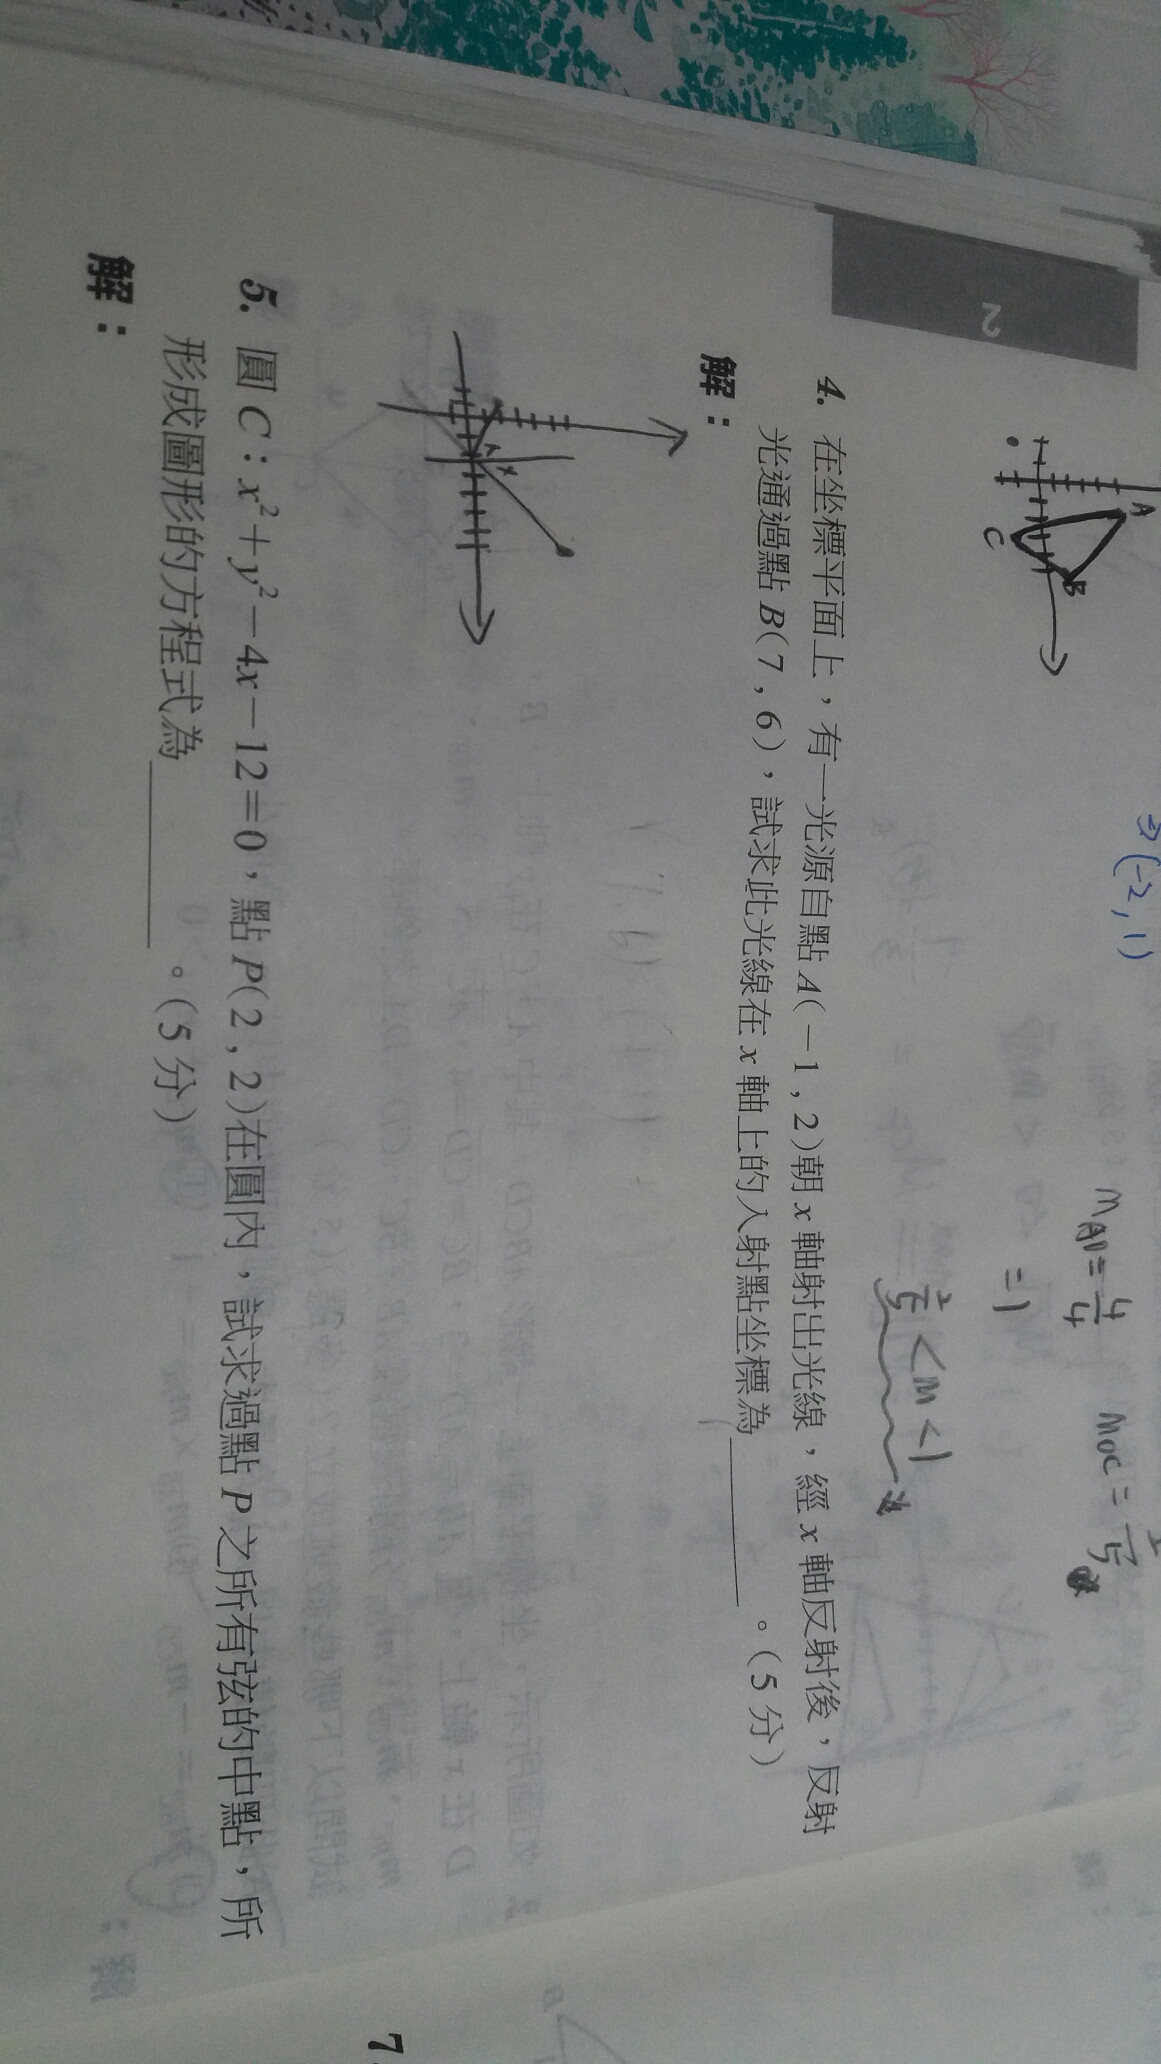 2
A
B
C
⇒(-2,1)
m_AD=4/4
=1
m_OC=
2/5<m<1
4. 在坐標平面上，有一光源自點A(-1,2)朝x軸射出光線，經x軸反射後，反射
光通過點B(7,6)，試求此光線在x軸上的入射點坐標為＿＿＿＿。(5分)
解：
A
x
5. 圓C：x²+y²-4x-12=0，點P(2,2)在圓內，試求過點P之所有弦的中點，所
形成圖形的方程式為＿＿＿＿。(5分)
解：
7.